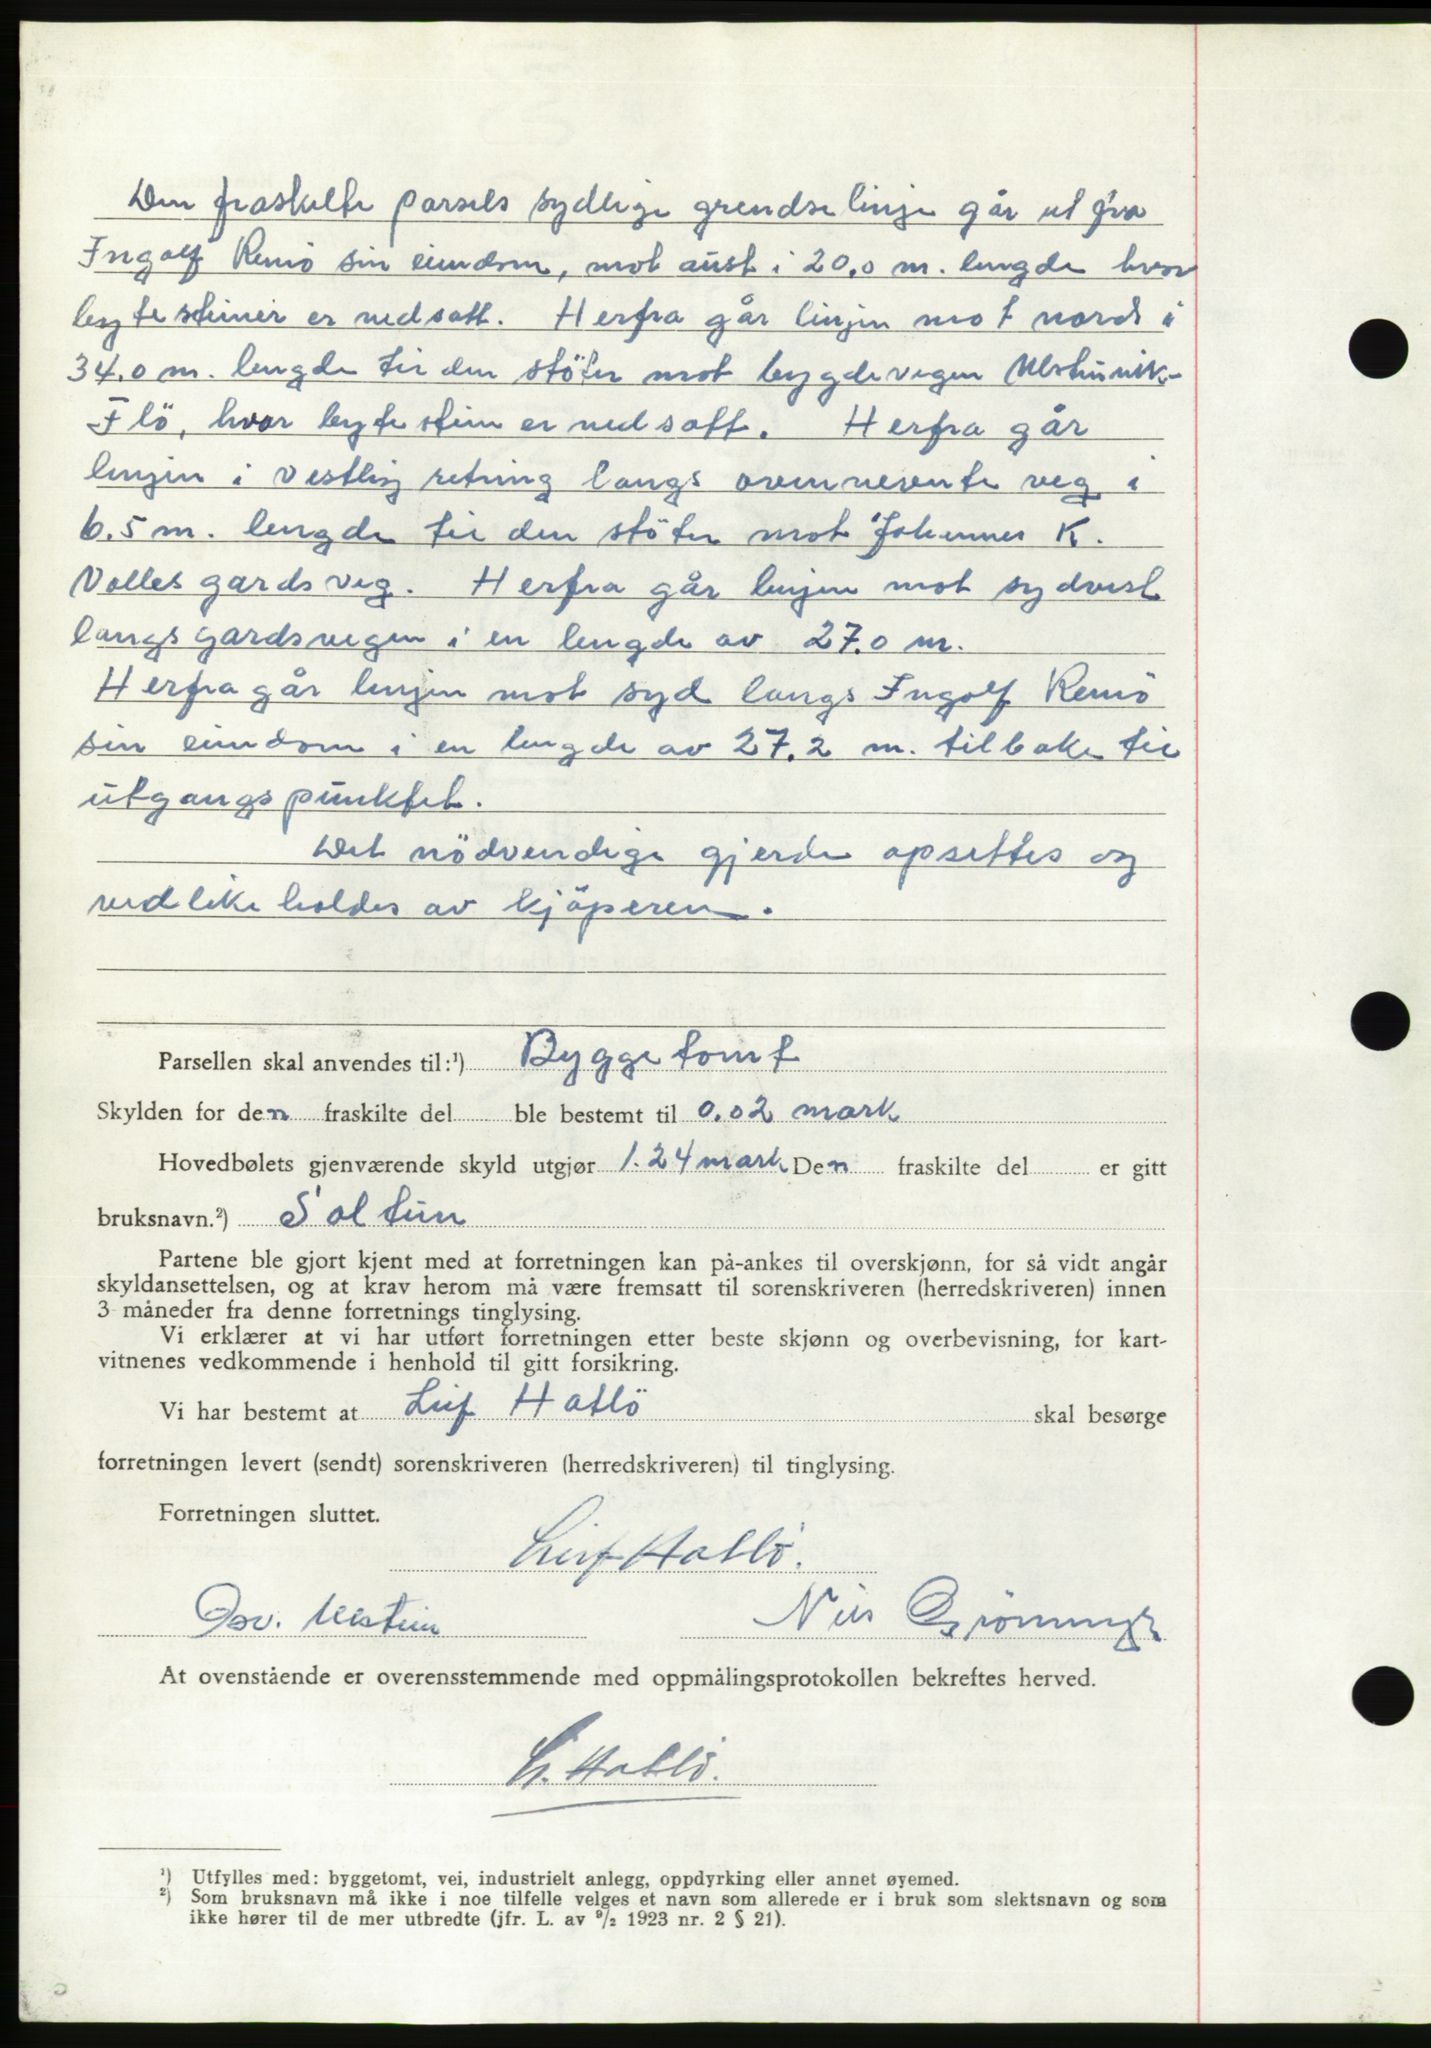 Den fraskilte parsels sydlige grendselinje går ut fra
Ingolf Remö sin eiendom, mot aust i 20,0 m. lengde hvor
bytesteiner er nedsatt. Herfra går linjen mot nord i
34.0 m. lengde til den stöter mot bygdevegen Ulsteinvik-
Flö, hvor bytestein er nedsatt. Herfra går
linjen i vestlig retning langs ovennevnte veg i
6.5 m. lengde til den stöter mot Johannes K.
Valles gardsveg. Herfra går linjen mot sydvest
langs gardsvegen i en lengde av 27.0 m.
Herfra går linjen mot syd langs Ingolf Remö
sin eiendom i en lengde av 27.2 m. tilbake til
utgangspunktet.
Det nödvendige gjerde opsettes og
vedlikeholdes av kjöperen.
Parsellen skal anvendes til:¹) Byggetomt
Skylden for den fraskilte del ble bestemt til 0.02 mark
Hovedbølets gjenværende skyld utgjør 1.24 mark Den fraskilte del er gitt
bruksnavn.²) Soltun
Partene ble gjort kjent med at forretningen kan på-ankes til overskjønn, for så vidt angår
skyldansettelsen, og at krav herom må være fremsatt til sorenskriveren (herredskriveren) innen
3 måneder fra denne forretnings tinglysing.
Vi erklærer at vi har utført forretningen etter beste skjønn og overbevisning, for kart-
vitnenes vedkommende i henhold til gitt forsikring.
Vi har bestemt at Leif Hatlö skal besørge
forretningen levert (sendt) sorenskriveren (herredskriveren) til tinglysing.
Forretningen sluttet.
Leif Hatlö.
Osv. Ulstein Nils Grönningsæter
At ovenstående er overensstemmende med oppmålingsprotokollen bekreftes herved.
L. Hatlö.
¹) Utfylles med: byggetomt, vei, industrielt anlegg, oppdyrking eller annet øyemed.
²) Som bruksnavn må ikke i noe tilfelle velges et navn som allerede er i bruk som slektsnavn og som
ikke hører til de mer utbredte (jfr. L. av ⁹/₂ 1923 nr. 2 § 21).